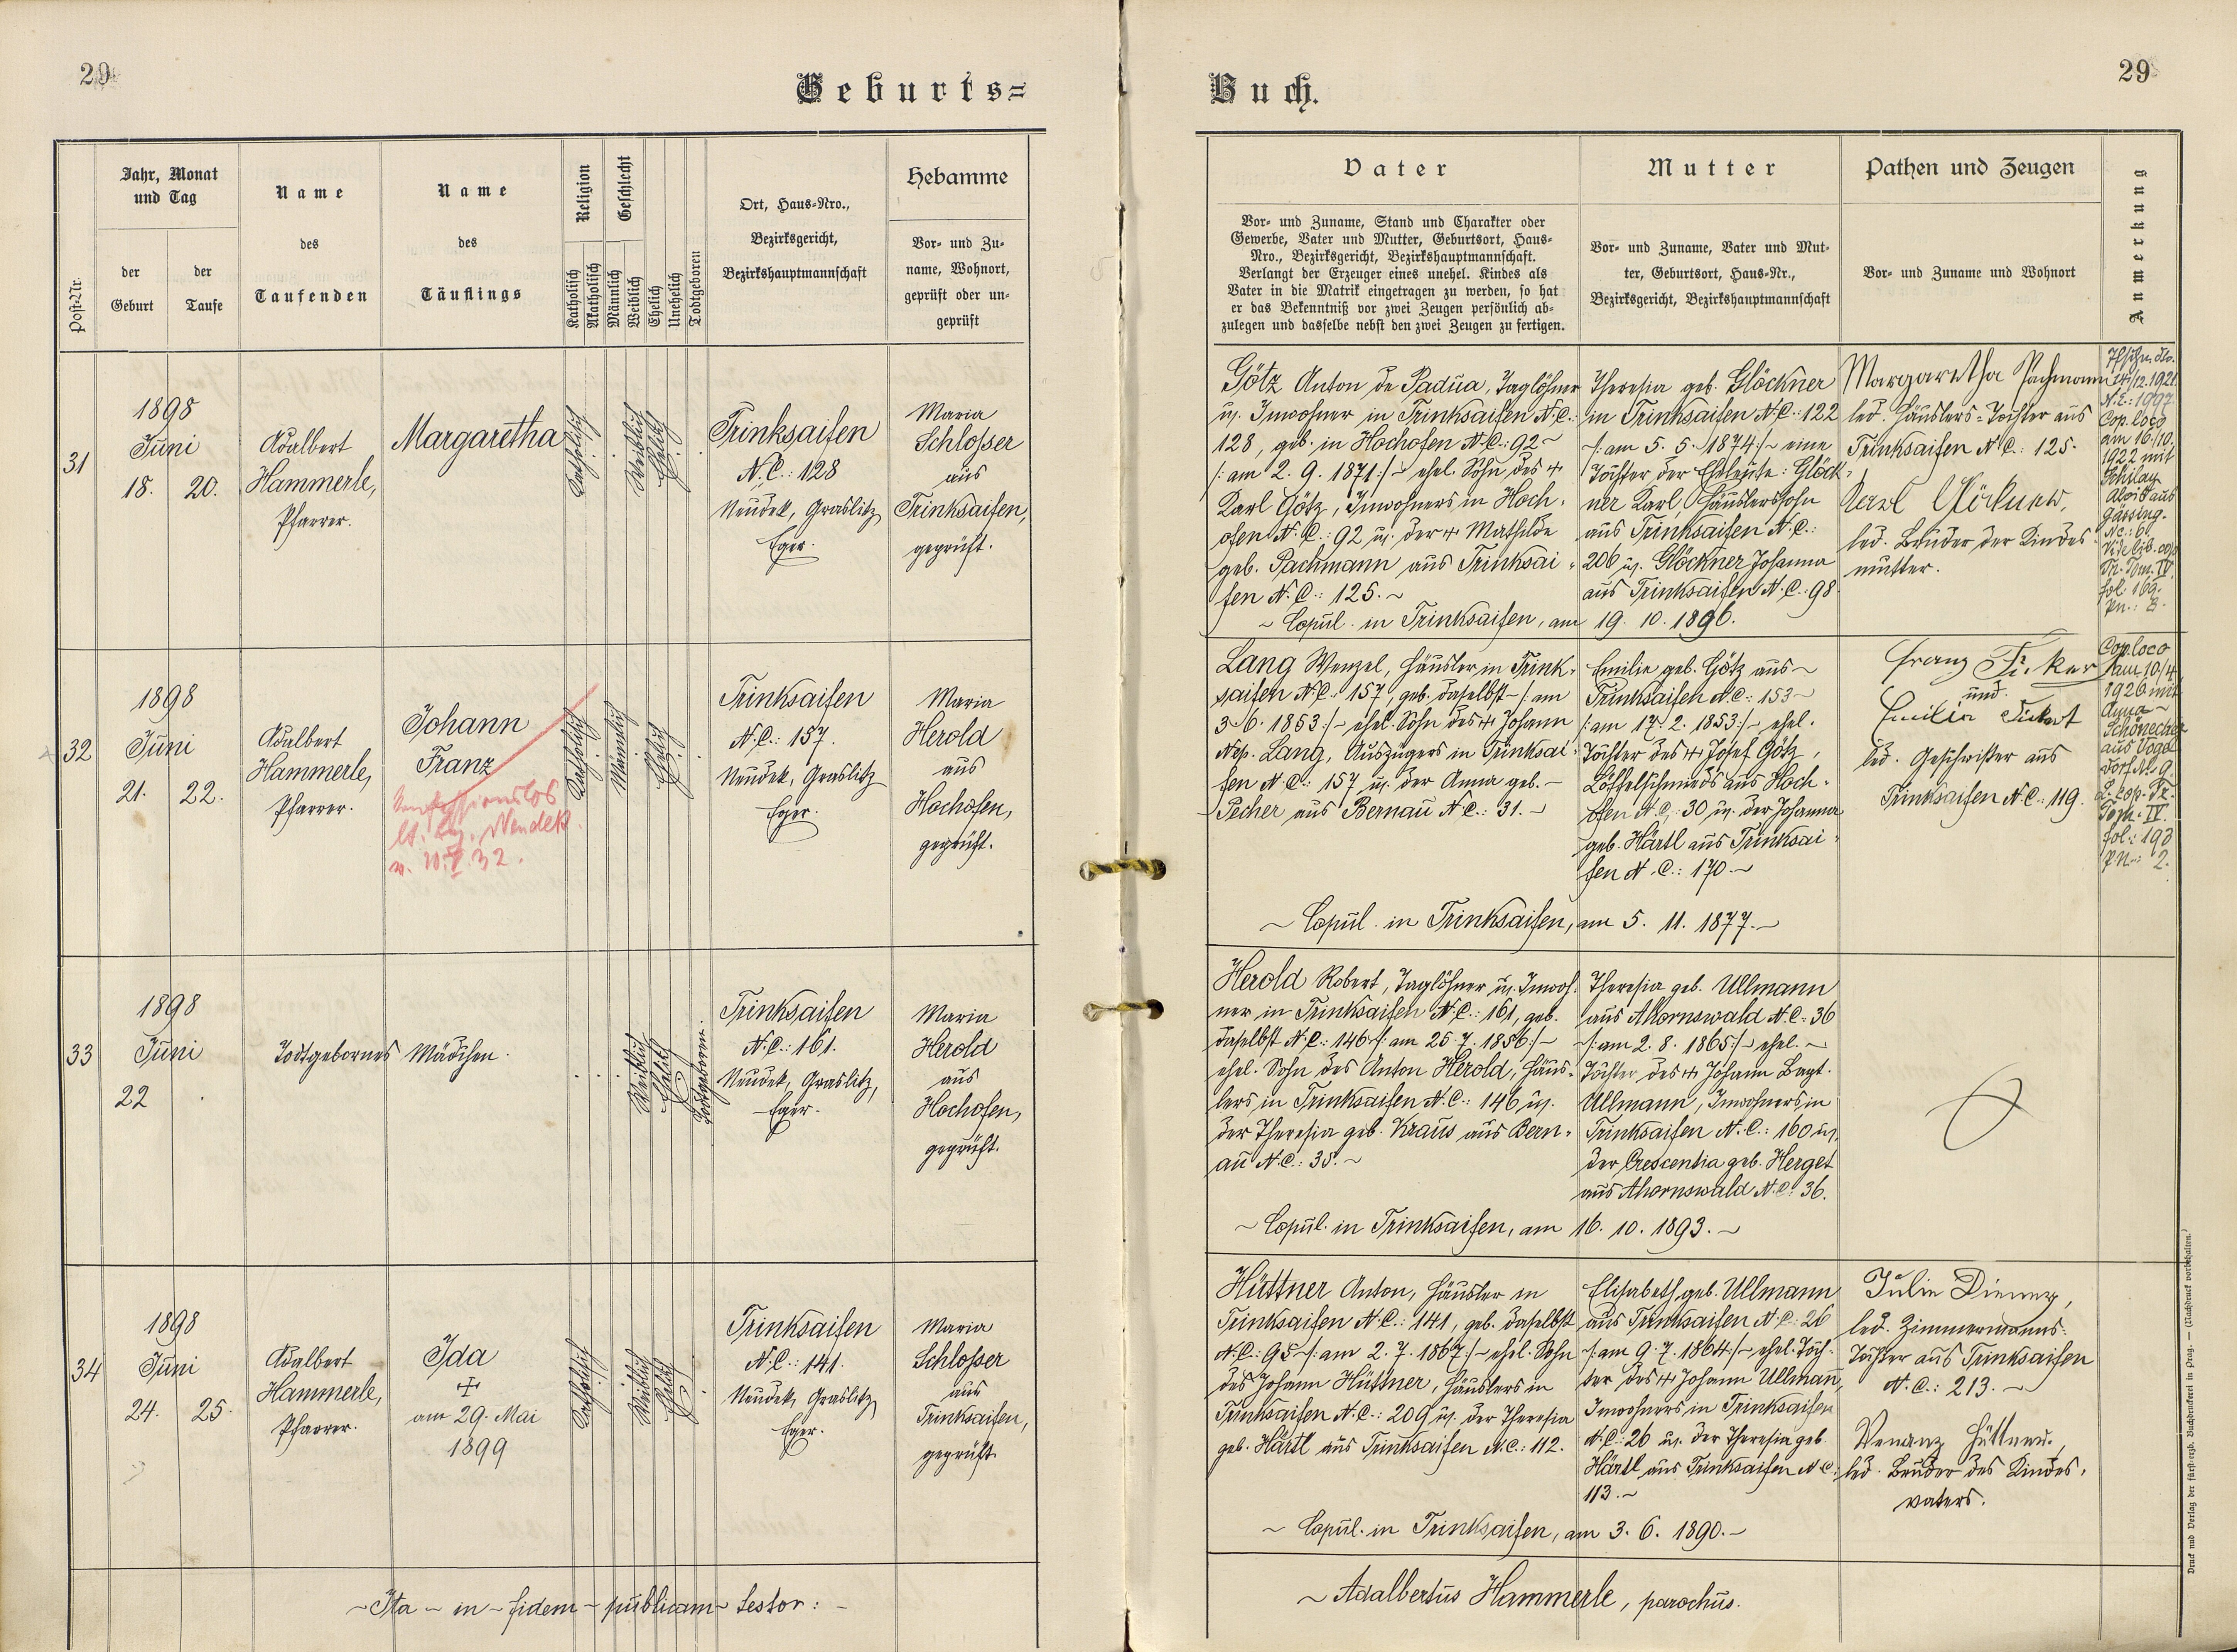 29
Geburts=
Post-Nr.
Jahr, Monat
und Tag
der
Geburt
der
Taufe
Name
des
Taufenden
Name
des
Täuflings
Religion
Katholisch
Akatholisch
Geschlecht
Männlich
Weiblich
Ehelich
Unehelich
Todtgeboren
Ort, Haus-Nro.,
Bezirksgericht,
Bezirkshauptmannschaft
Hebamme
Vor- und Zu-
name, Wohnort,
geprüft oder un-
geprüft
31
1898
Juni
18. 20.
Adalbert
Hammerle,
Pfarrer.
Margaretha
Katholisch
Weiblich
Ehelich
Trinksaifen
N.C.: 128
Neudek, Graslitz
Eger.
Maria
Schlosser
aus
Trinksaifen,
geprüft.
32
1898
Juni
21. 22.
Adalbert
Hammerle,
Pfarrer.
Johann
Franz
Konfessionslos
Katholisch
Männlich
Ehelich
Trinksaifen
N.C.: 157.
Neudek, Graslitz
Eger.
Maria
Herold
aus
Hochofen,
geprüft.
33
1898
Juni
22
Todtgebornes Mädchen.
Weiblich
Ehelich
Todtgeboren.
Trinksaifen
N.C.: 161.
Neudek, Graslitz,
Eger.
Maria
Herold
aus
Hochofen,
geprüft.
34
1898
Juni
24. 25.
Adalbert
Hammerle,
Pfarrer.
Ida
am 29. Mai
1899
Katholisch
Weiblich
Ehelich
Trinksaifen
N.C.: 141.
Neudek, Graslitz
Eger.
Maria
Schlosser
aus
Trinksaifen,
geprüft.
~ Ita ~ in ~ fidem ~ publicam ~ testor: ~
Buch.
29
Vater
Vor- und Zuname, Stand und Charakter oder
Gewerbe, Vater und Mutter, Geburtsort, Haus-
Nro., Bezirksgericht, Bezirkshauptmannschaft.
Verlangt der Erzeuger eines unehel. Kindes als
Vater in die Matrik eingetragen zu werden, so hat
er das Bekenntniß vor zwei Zeugen persönlich ab-
zulegen und dasselbe nebst den zwei Zeugen zu fertigen.
Mutter
Vor- und Zuname, Vater und Mut-
ter, Geburtsort, Haus-Nr.,
Bezirksgericht, Bezirkshauptmannschaft
Pathen und Zeugen
Vor- und Zuname und Wohnort
Anmerkung
Götz Anton de Padua, Taglöhner
u. Inwohner in Trinksaifen N.C.:
128, geb. in Hochofen N.C.: 92 ~
/: am 2. 9. 1871 :/ ~ ehel. Sohn des +
Karl Götz, Inwohners in Hoch-
ofen N.C.: 92 u. der + Mathilde
geb. Pachmann aus Trinksai-
fen N.C.: 125. ~
Theresia geb. Glöckner
in Trinksaifen N.C.: 122
/: am 5. 5. 1874 :/ ~ eine
Tochter der Eheleute: Glöck-
ner Karl, Häuslerssohn
aus Trinksaifen N.C.:
206 u. Glöckner Johanna
aus Trinksaifen N.C.: 98.
~ Copul. in Trinksaifen, am 19. 10. 1896.
Margaretha Pachmann
led. Häuslers-Tochter aus
Trinksaifen N.C.: 125.
Karl Glöckner,
led. Bruder der Kindes-
mutter.
14/12.1921.
Cop. loco
am 16/10.
1922 mit
Alois aus
N.C.: 6.
Tom. IV.
fol. 169.
Lang Wenzel, Häusler in Trink-
saifen N.C.: 157, geb. daselbst ~ /: am
3. 6. 1853 :/ ~ ehel. Sohn des + Johann
Nep. Lang, Auszügers in Trinksai-
fen N.C.: 157 u. der Anna geb. ~
Pecher aus Bernau N.C.: 31. ~
Emilie geb. Götz aus ~
Trinksaifen N.C.: 153 ~
/: am 17. 2. 1853 :/ ~ ehel.
Tochter des + Josef Götz,
Löffelschmieds aus Hoch-
ofen N.C.: 30 u. der Johanna
geb. Härtl aus Trinksai-
fen N.C.: 170. ~
~ Copul. in Trinksaifen, am 5. 11. 1877. ~
Franz
und
Emilia
led. Geschwister aus
Trinksaifen N.C.: 119.
Cop. loco
am 10/4
1926 mit
Anna
aus Vogel-
dorf N. 9.
Tom. IV.
fol.: 193
PN.: 2.
Herold Robert, Taglöhner u. Inwoh-
ner in Trinksaifen N.C.: 161, geb.
daselbst N.C.: 146 /: am 25. 7. 1856 :/ ~
ehel. Sohn des Anton Herold, Häus-
lers in Trinksaifen N.C.: 146 u.
der Theresia geb. Kraus aus Bern-
au N.C.: 35. ~
Theresia geb. Ullmann
aus Ahornswald N.C.: 36
/: am 2. 8. 1865 :/ ~ ehel. ~
Tochter des + Johann Bapt.
Ullmann, Inwohners in
Trinksaifen N.C.: 160 u.
der Crescentia geb. Herget
aus Ahornswald N.C.: 36.
~ Copul. in Trinksaifen, am 16. 10. 1893. ~
Hüttner Anton, Häusler in
Trinksaifen N.C.: 141, geb. daselbst
N.C.: 95 ~ /: am 2. 7. 1867 :/ ~ ehel. Sohn
des Johann Hüttner, Häuslers in
Trinksaifen N.C.: 209 u. der Theresia
geb. Härtl aus Trinksaifen N.C.: 112.
Elisabeth geb. Ullmann
aus Trinksaifen N.C.: 26
/: am 9. 7. 1864 :/ ~ ehel. Toch-
ter des + Johann Ullmann,
Inwohners in Trinksaifen
N.C.: 26 u. der Theresia geb.
Härtl aus Trinksaifen N.C.:
113. ~
~ Copul. in Trinksaifen, am 3. 6. 1890. ~
Julie
led. Zimmermanns-
Tochter aus Trinksaifen
N.C.: 213. ~
Venanz Hüttner,
led. Bruder des Kindes-
vaters.
~ Adalbertus Hammerle, parochus.
Druck und Verlag der fürst-erzb. Buchdruckerei in Prag. — (Nachdruck vorbehalten.)